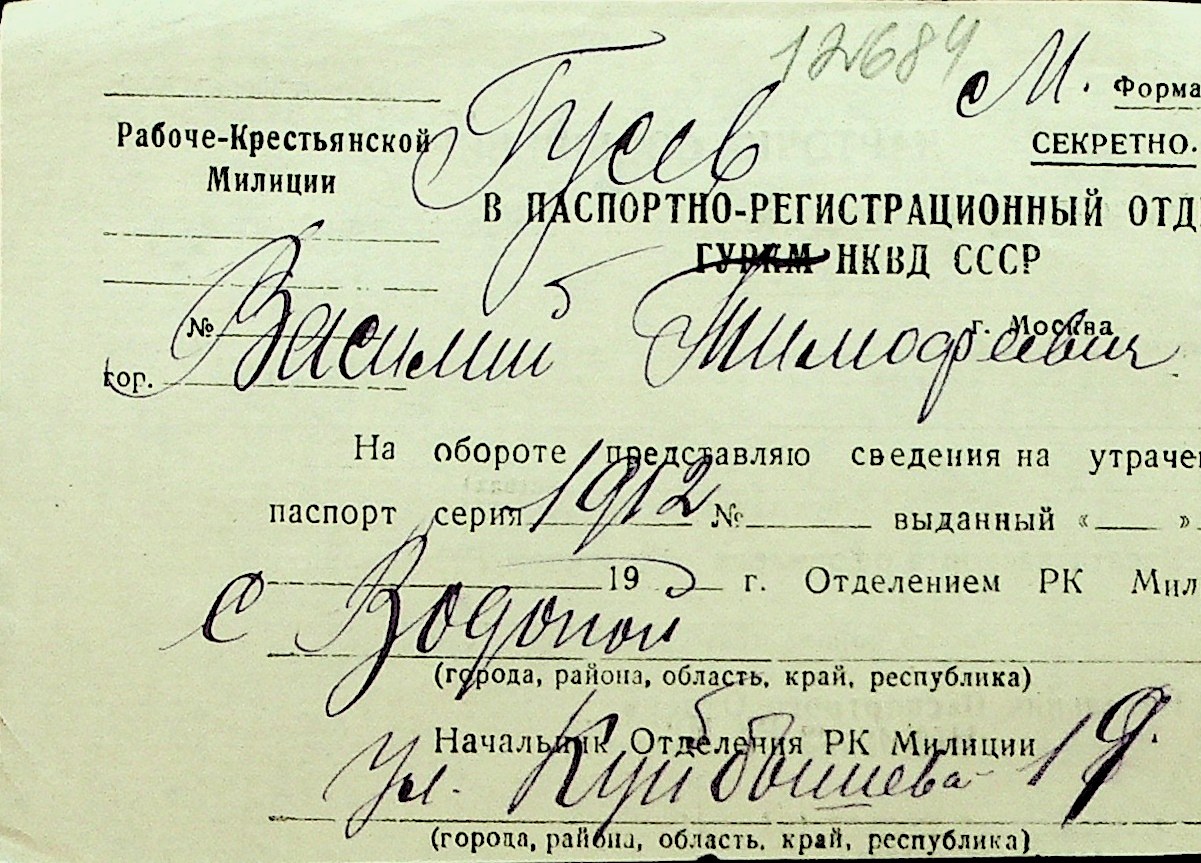 12684
Гусев М. Форма
Рабоче-Крестьянской
Милиции
СЕКРЕТНО.
В ПАСПОРТНО-РЕГИСТРАЦИОННЫЙ ОТД
ГУРКМ НКВД СССР
№ г. Москва
Василий Тимофеевич
гор.
На обороте представляю сведения на утраче
паспорт серия 1912 № выданный « »
19 г. Отделением РК Мил
с Водопой
(города, района, область, край, республика)
Начальник Отделения РК Милиции
ул. Куйбышева 19.
(города, района, область, край, республика)